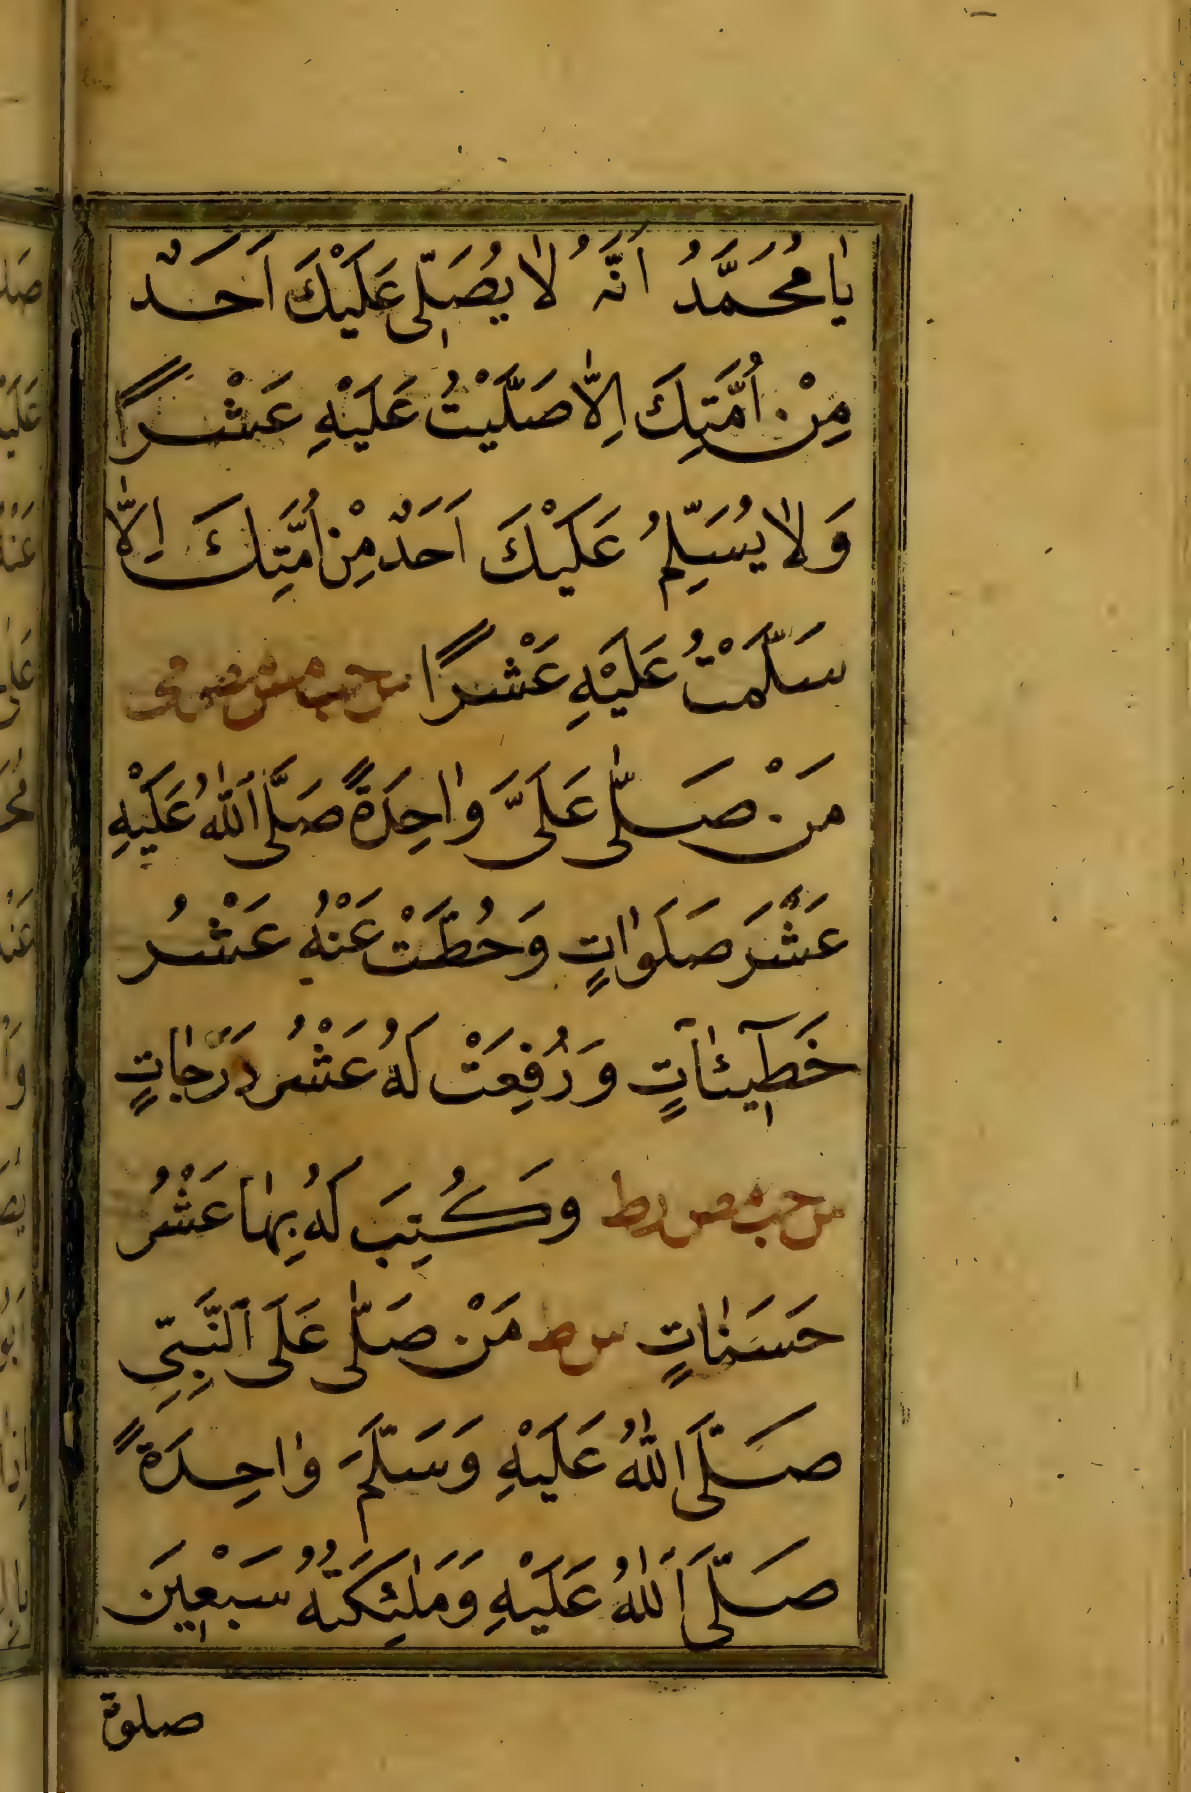 يَا مُحَمَّدُ اَنَّهُ لَا يُصَلِّى عَلَيْكَ اَحَدٌ
مِنْ اُمَّتِكَ اِلَّا صَلَّيْتُ عَلَيْهِ عَشْرًا
وَلَا يُسَلِّمُ عَلَيْكَ اَحَدٌ مِنْ اُمَّتِكَ اِلَّا
سَلَّمْتُ عَلَيْهِ عَشْرًا س حب مس مص مى
مَنْ صَلَّى عَلَىَّ وَاحِدَةً صَلَّى اللهُ عَلَيْهِ
عَشْرَ صَلَوَاتٍ وَحُطَّتْ عَنْهُ عَشْرُ
خَطِيئَاتٍ وَرُفِعَتْ لَهُ عَشْرُ دَرَجَاتٍ
س حب مص ر ط وَكُتِبَ لَهُ بِهَا عَشْرُ
حَسَنَاتٍ س ط مَنْ صَلَّى عَلَى النَّبِىِّ
صَلَّى اللهُ عَلَيْهِ وَسَلَّمَ وَاحِدَةً
صَلَّى اللهُ عَلَيْهِ وَمَلٰئِكَتُهُ سَبْعِينَ
صلوة